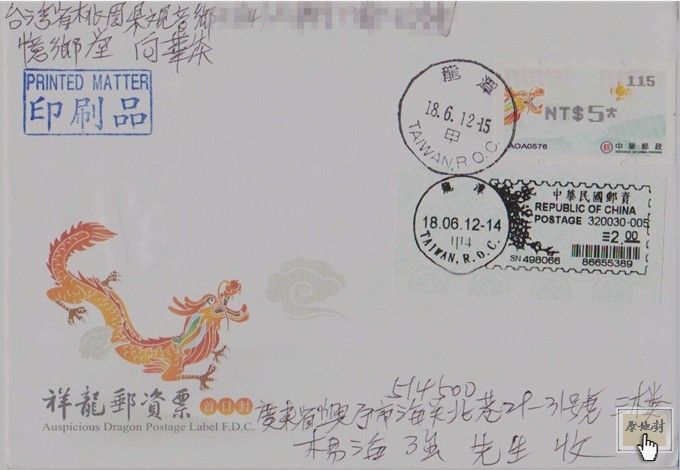 台湾省桃園県观音鄉
憶鄉堂 向華荣
PRINTED MATTER
印刷品
龍潭
18.6.12-15
甲
TAIWAN,R.O.C.
115
NT$5*
AOA0576
中華郵政
龍潭
18.06.12-14
TAIWAN,R.O.C.
中華民國郵資
REPUBLIC OF CHINA
POSTAGE 320030-005
2.00
SN 498066 86655389
514500
祥龍郵資票 首日封
Auspicious Dragon Postage Label F.D.C.
廣東省興寧市海天北巷21-31號 三楼
杨海强 先生 收
原地封